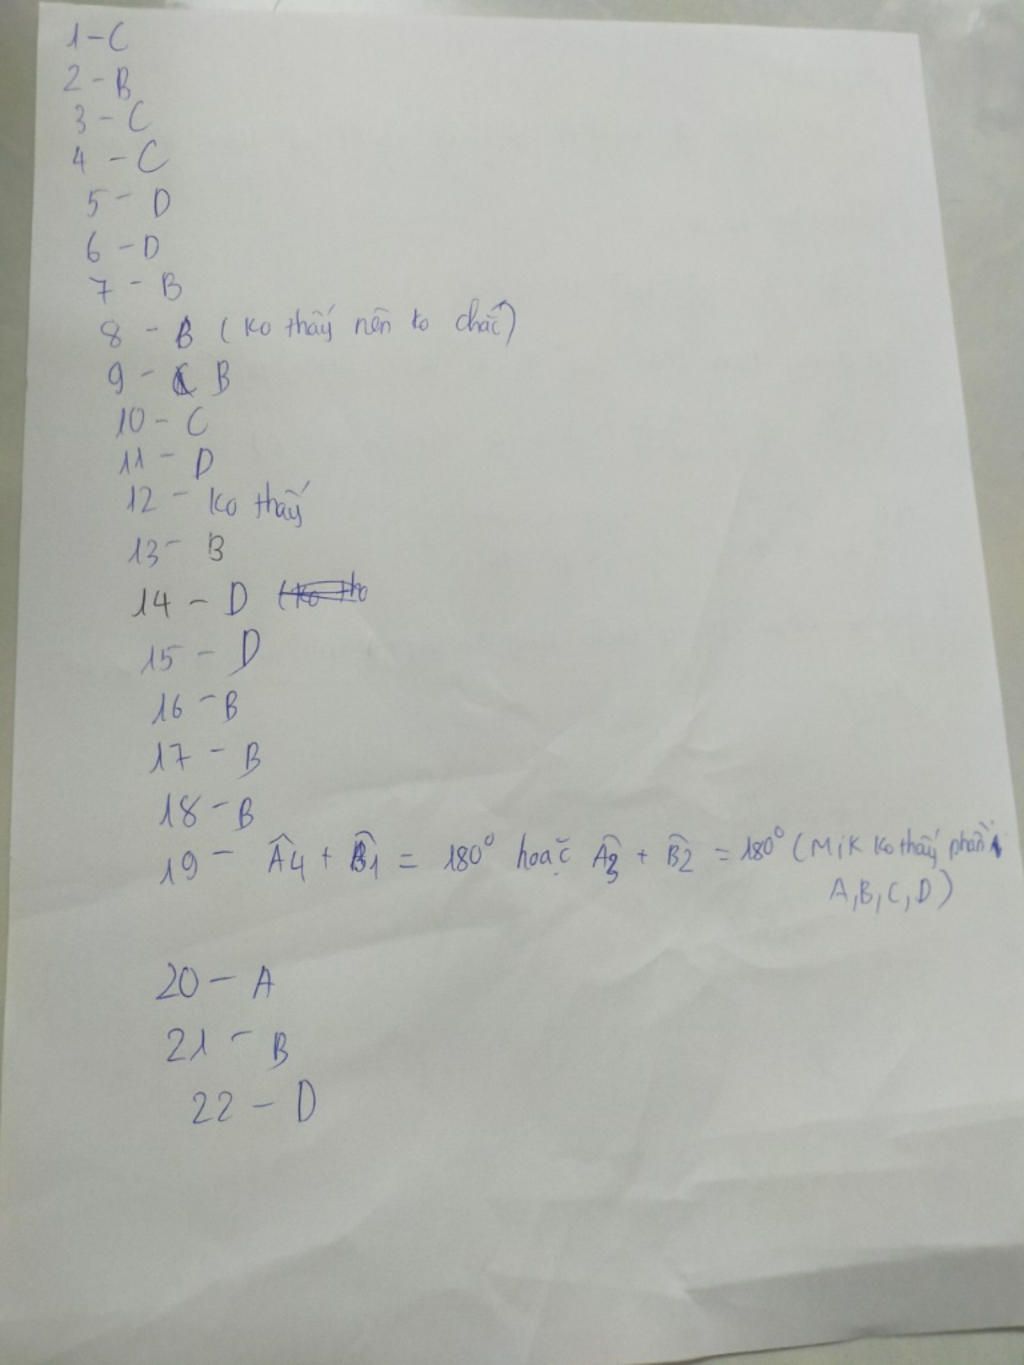 1 - C
2 - B
3 - C
4 - C
5 - D
6 - D
7 - B
8 - B (ko thấy nên ko chắc)
9 - B
10 - C
11 - D
12 - ko thấy
13 - B
14 - D
15 - D
16 - B
17 - B
18 - B
19 - Â4 + B̂1 = 180° hoặc Â3 + B̂2 = 180° (Mik ko thấy phần
A, B, C, D)
20 - A
21 - B
22 - D